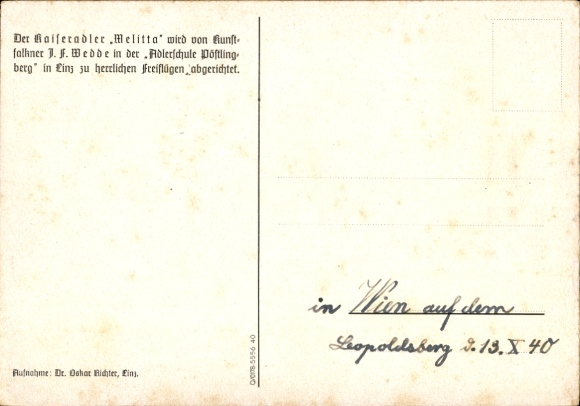 Der Kaiseradler „Melitta" wird von Kunst-
falkner J. F. Wedde in der „Adlerschule Pöstling-
berg" in Linz zu herrlichen Freiflügen abgerichtet.
Aufnahme: Dr. Oskar Richter, Linz.
in Wien auf dem
Leopoldsberg d. 13. X 40